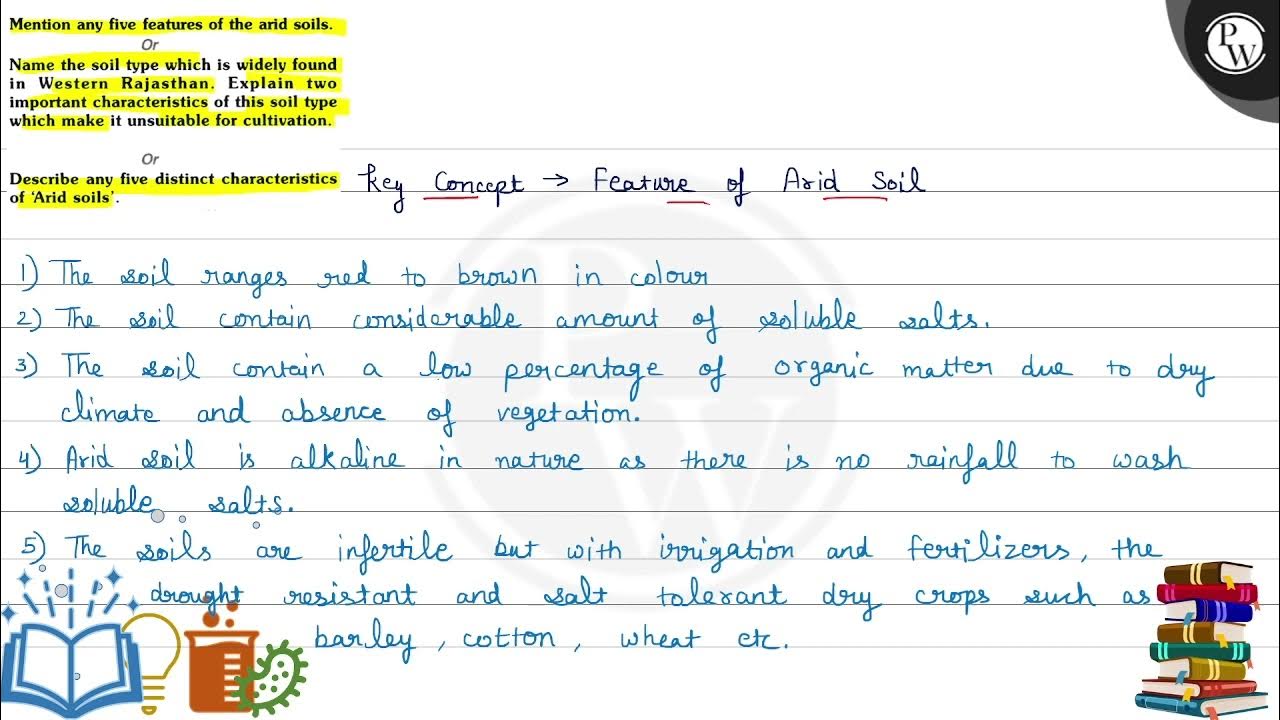 Mention any five features of the arid soils.
Or
Name the soil type which is widely found
in Western Rajasthan. Explain two
important characteristics of this soil type
which make it unsuitable for cultivation.
Or
Describe any five distinct characteristics
of 'Arid soils'.
PW
Key Concept → Feature of Arid Soil
1) The soil ranges red to brown in colour
2) The soil contain considerable amount of soluble salts.
3) The soil contain a low percentage of organic matter due to dry
climate and absence of vegetation.
4) Arid soil is alkaline in nature as there is no rainfall to wash
soluble salts.
5) The soils are infertile but with irrigation and fertilizers, the
drought resistant and salt tolerant dry crops such as
barley, cotton, wheat etc.